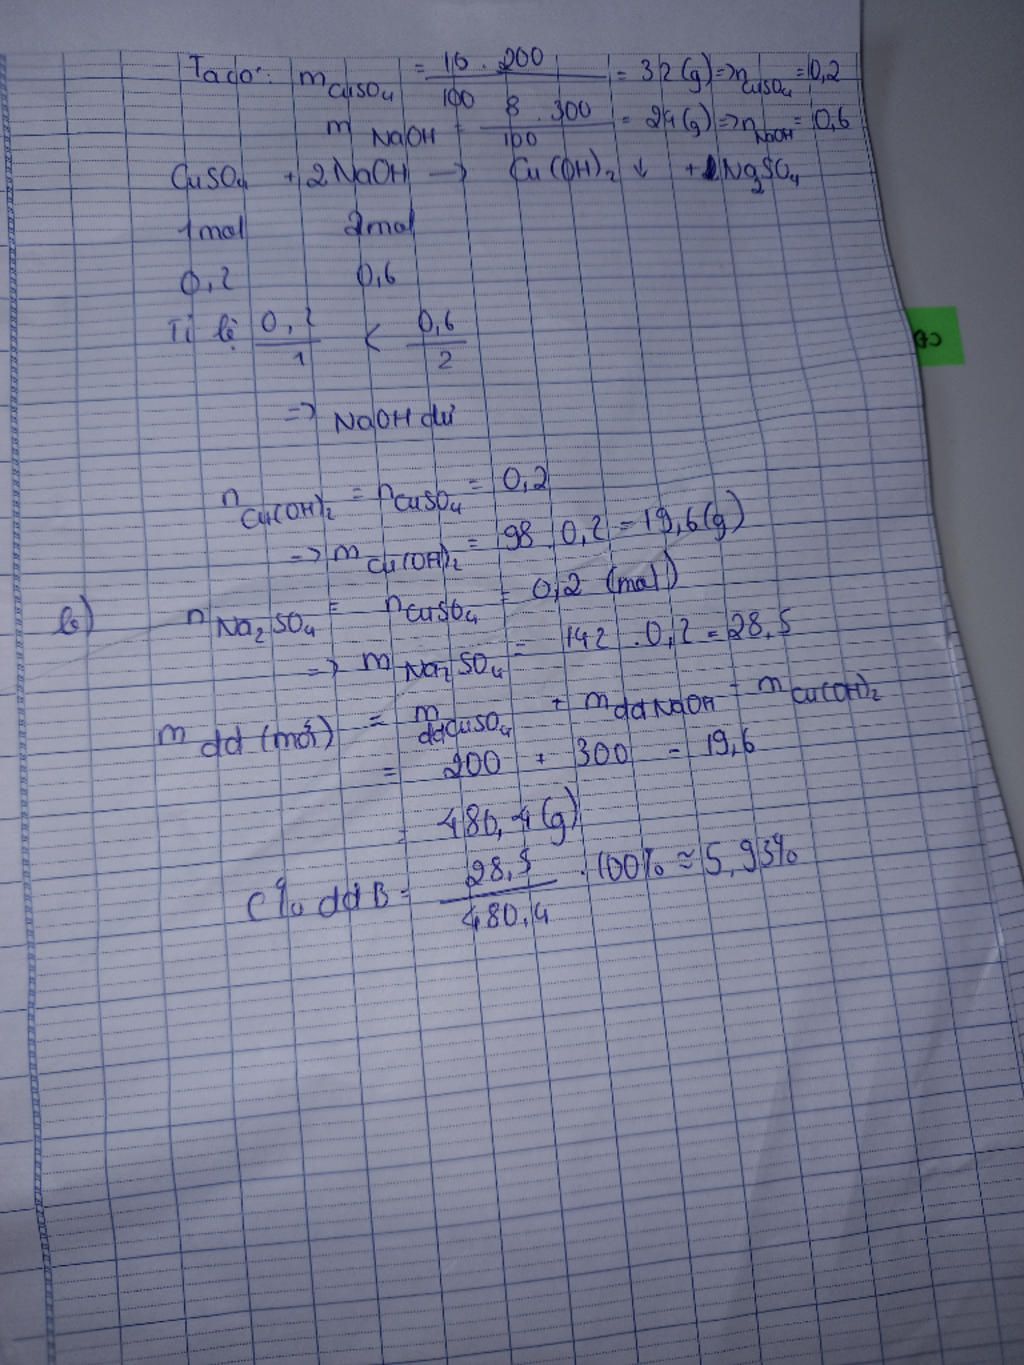 Ta có: m CuSO₄ = 16 . 200 / 100 = 32 (g) => n CuSO₄ = 0,2
m NaOH = 8 . 300 / 100 = 24 (g) => n NaOH = 0,6
CuSO₄ + 2NaOH → Cu(OH)₂ ↓ + Na₂SO₄
1mol 2mol
0,2 0,6
Tỉ lệ 0,2 / 1 < 0,6 / 2
=> NaOH dư
n Cu(OH)₂ = n CuSO₄ = 0,2
=> m Cu(OH)₂ = 98 . 0,2 = 19,6 (g)
b) n Na₂SO₄ = n CuSO₄ = 0,2 (mol)
=> m Na₂SO₄ = 142 . 0,2 = 28,5
m dd (mới) = m ddCuSO₄ + m ddNaOH - m Cu(OH)₂
= 200 + 300 - 19,6
= 480,4 (g)
C% dd B = 28,5 / 480,4 . 100% ≈ 5,93%